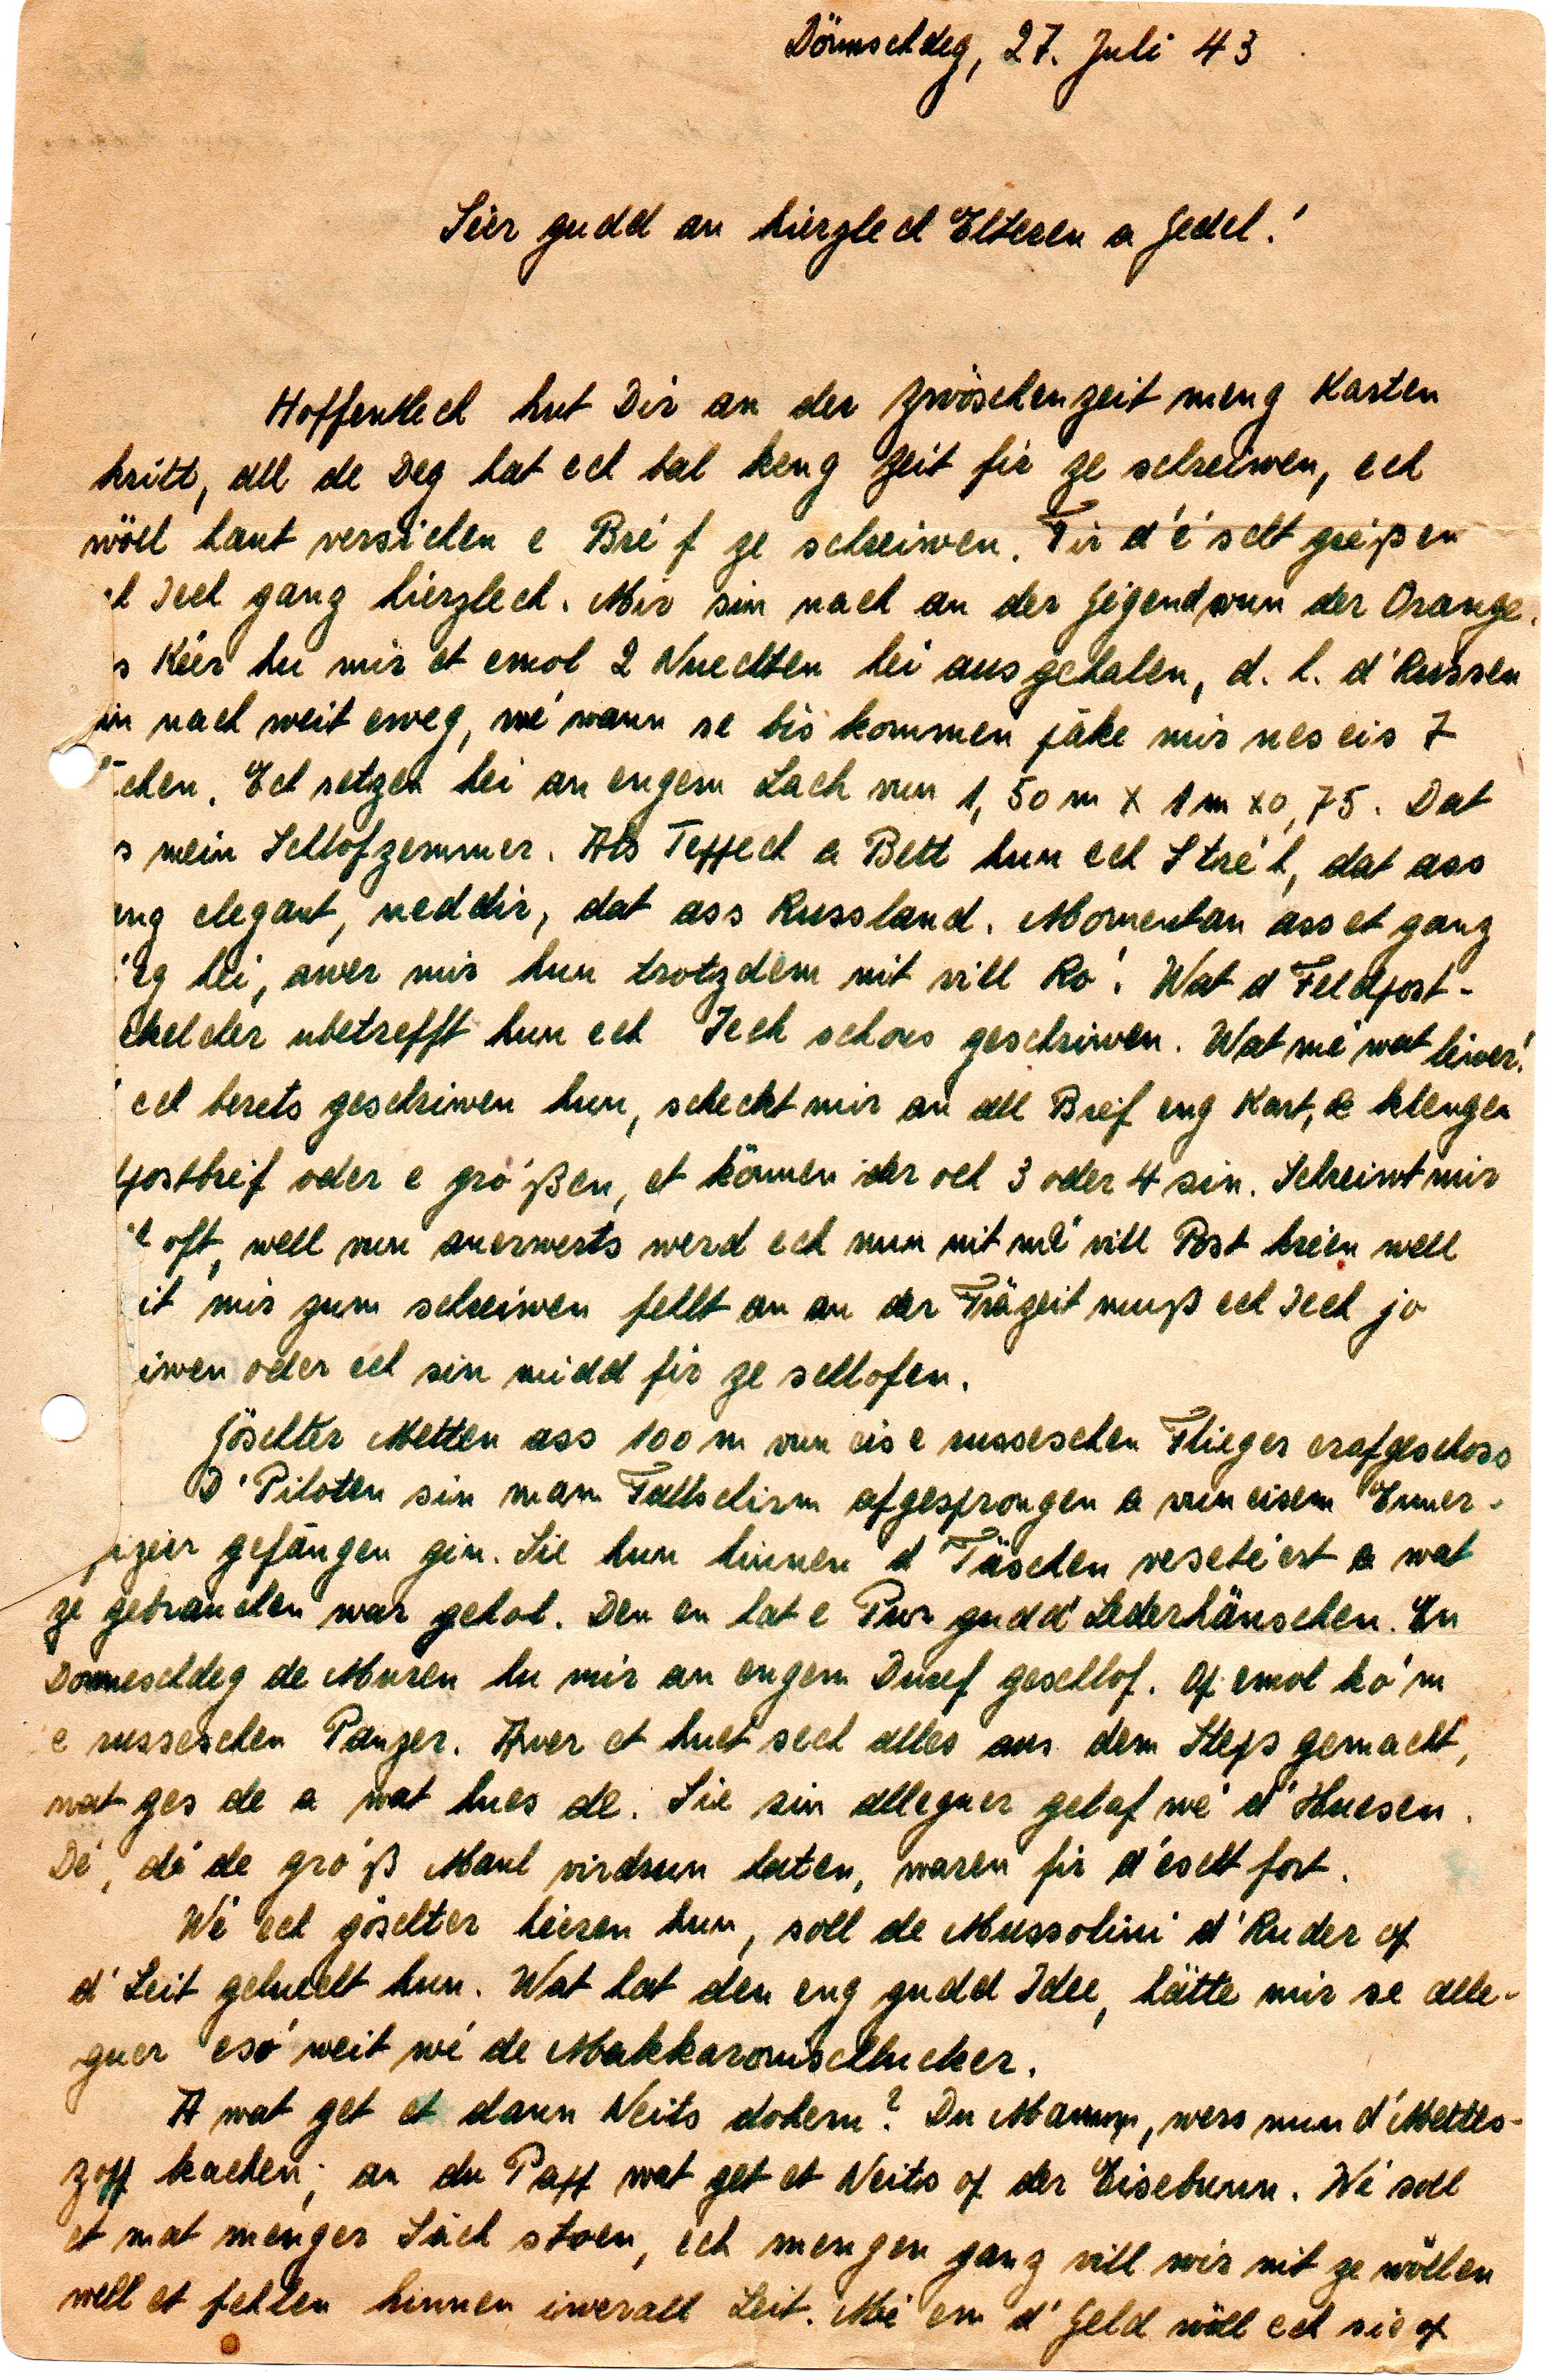 Dönnschdeg, 27. Juli 43
Sier gudd an hierzlech Elteren a Jedel!
Hoffentlech hut Dir an der Zwöschenzeit meng Karten
kritt, all de Deg hat ech bal keng Zeit fir ze schreiwen, ech
wöll haut versichen e Bréf ze schreiwen. Fir d'éischt gréißen
Iech ganz hierzlech. Mir sin nach an der Gégend vun der Orange.
Kéer hu mir et emol 2 Nuechten hei ausgehalen, d. h. d'Russen
in nach weit eweg, mé wann se bis kommen jäke mir nes eis 7
chen. Ech setzen hei an engem Lach vun 1,50 m x 1 m x 0,75. Dat
s mein Schlofzemmer. Als Teppech a Bett hun ech Stréh, dat ass
ng elegant, ned dir, dat ass Russland. Momentan ass et ganz
eg hei, awer mir hun trotzdem nit vill Ro! Wat d Feldpost-
ubetrefft hun ech Iech schons geschriwen. Wat mé wat léiwer!
ech berets geschriwen hun, scheckt mir an all Breif eng Kart, e klengen
postbreif oder e gró'ßen, et können der och 3 oder 4 sin. Schreiwt mir
oft, well vun anerwerts werd ech nun nit mé vill Post kréien well
it mir zum schreiwen fehlt an an der Fräzeit muß ech Iech jo
iwen oder ech sin midd fir ze schlofen.
Göschter Metten ass 100 m vun eis e russeschen Flieger erafgeschoss
D'Piloten sin mam Fallschirm afgesprongen a vun eisem Enner-
zéier gefangen gin. Sie hun hinnen d'Täschen reseté'ert a wat
ze gebrauchen war geholl. Den en hat e Puer gudd Lederhänschen. En
Donneschdeg de Muren hu mir an engem Duref geschlof. Op emol kó'm
e russeschen Panzer. Awer et huet sech alles aus dem Steps gemacht,
wat ges de a wat hues de. Sie sin alleguer gelaf wé d'Huesen.
Dé, dé de gró'ß Maul virdrun haten, waren fir d'éscht fort.
Wé ech göschter héieren hun, soll de Mussolini d'Ruder op
d'Seit gehuelt hun. Wat hat den eng gudd Idee, hätte mir se alle-
guer esó weit wé de Makkaronischlucker.
A wat get et dann Neits dohem? Du Mamm, wess nun d'Mettes-
zopp kachen; an du Papp wat get et Neits op der Eisebunn. Wé soll
et mat menger Säch stoen, ech mengen ganz vill wir nit ze wöllen
well et fehlen hinnen iwerall Leit. Mé em d'Geld wöll ech sie op